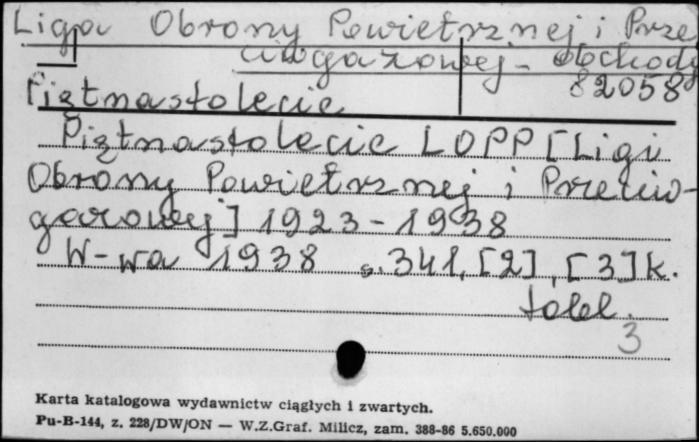 Liga Obrony Powietrznej i Prze
ciwgazowej - obchody
82058
Piętnastolecie
Piętnastolecie LOPP [Ligi
Obrony Powietrznej i Przeciw-
gazowej] 1923-1938
W-wa 1938 s. 341, [2], [3] k.
tabl.
3
Karta katalogowa wydawnictw ciągłych i zwartych.
Pu-B-144, z. 228/DW/ON — W.Z.Graf. Milicz, zam. 388-86 5.650.000